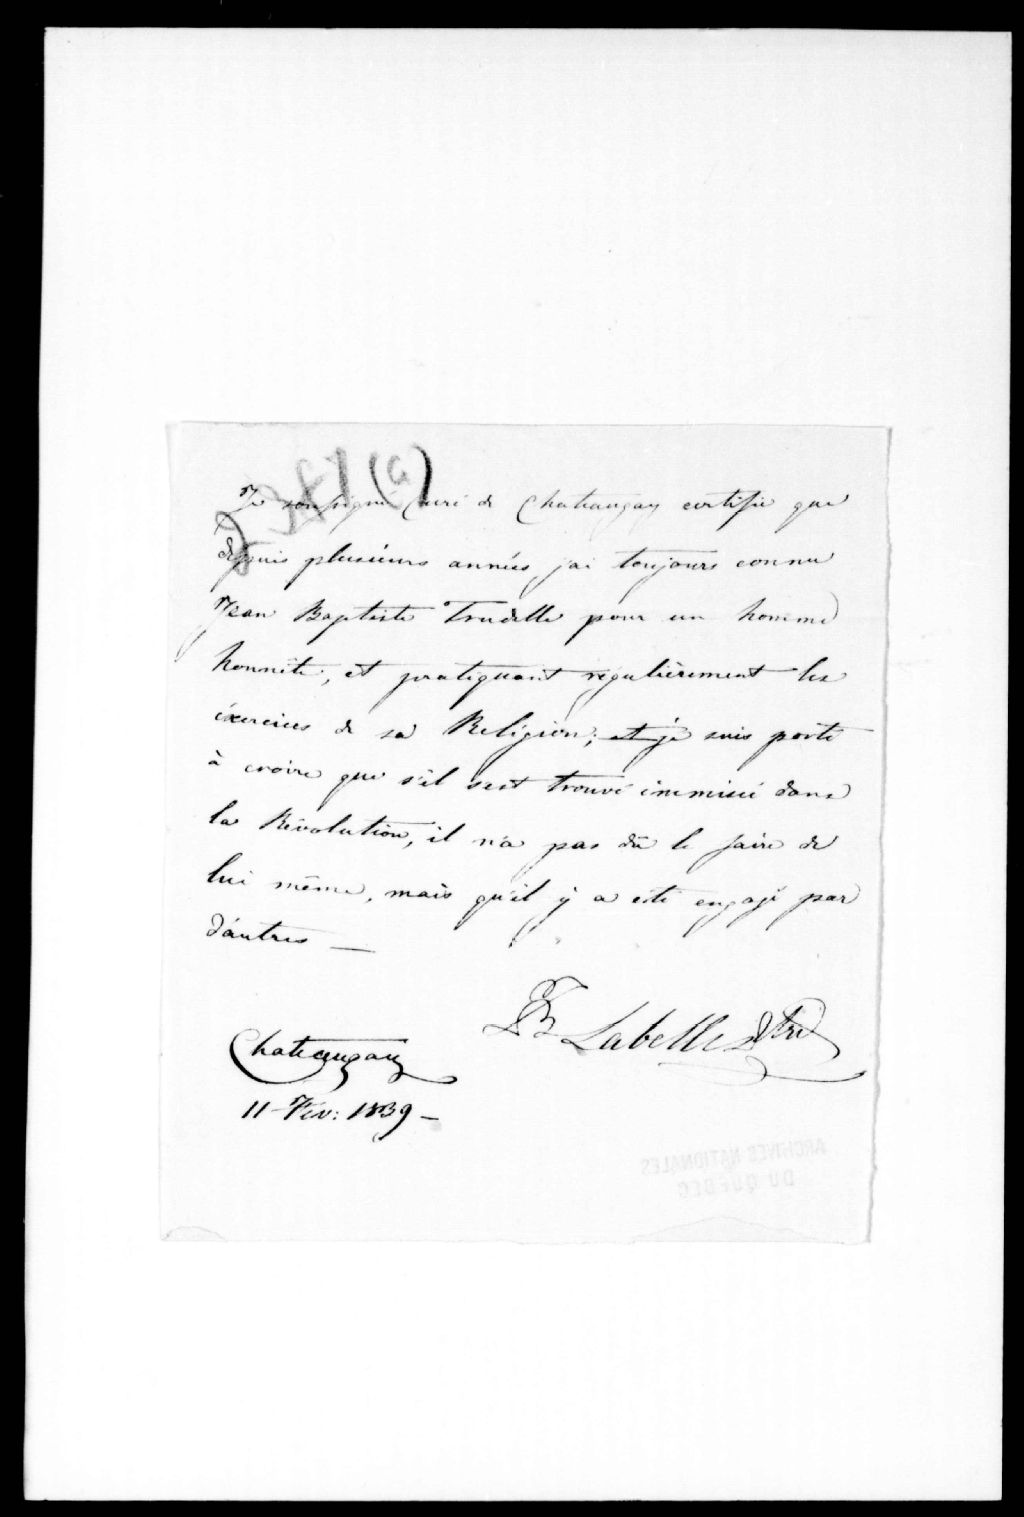 Je soussigné Curé de Chateaugay certifie que
depuis plusiéurs années j'ai toujours connu
Jean Baptiste Trudelle pour un homme
honnête, et pratiquant régulièrement les
éxercices de sa Religion; et je suis porté
à croire que s'il s'est trouvé immiscé dans
la Révolution, il n'a pas dû le faire de
lui même, mais qu'il y a été engagé par
d'autres —
JB Labelle Ptre
Chateaugay
11 Fév: 1839 –
ARCHIVES NATIONALES
DU QUÉBEC